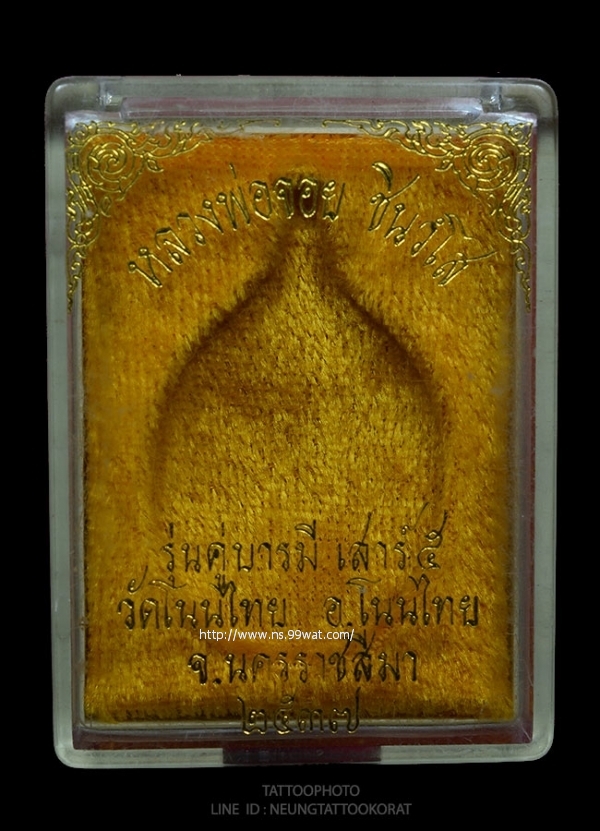 หลวงพ่อจอย ชินวํโส
รุ่นคู่บารมี เสาร์ ๕
วัดโนนไทย อ.โนนไทย
http://www.ns.99wat.com/
จ.นครราชสีมา
๒๕๓๗
TATTOOPHOTO
LINE ID : NEUNGTATTOOKORAT